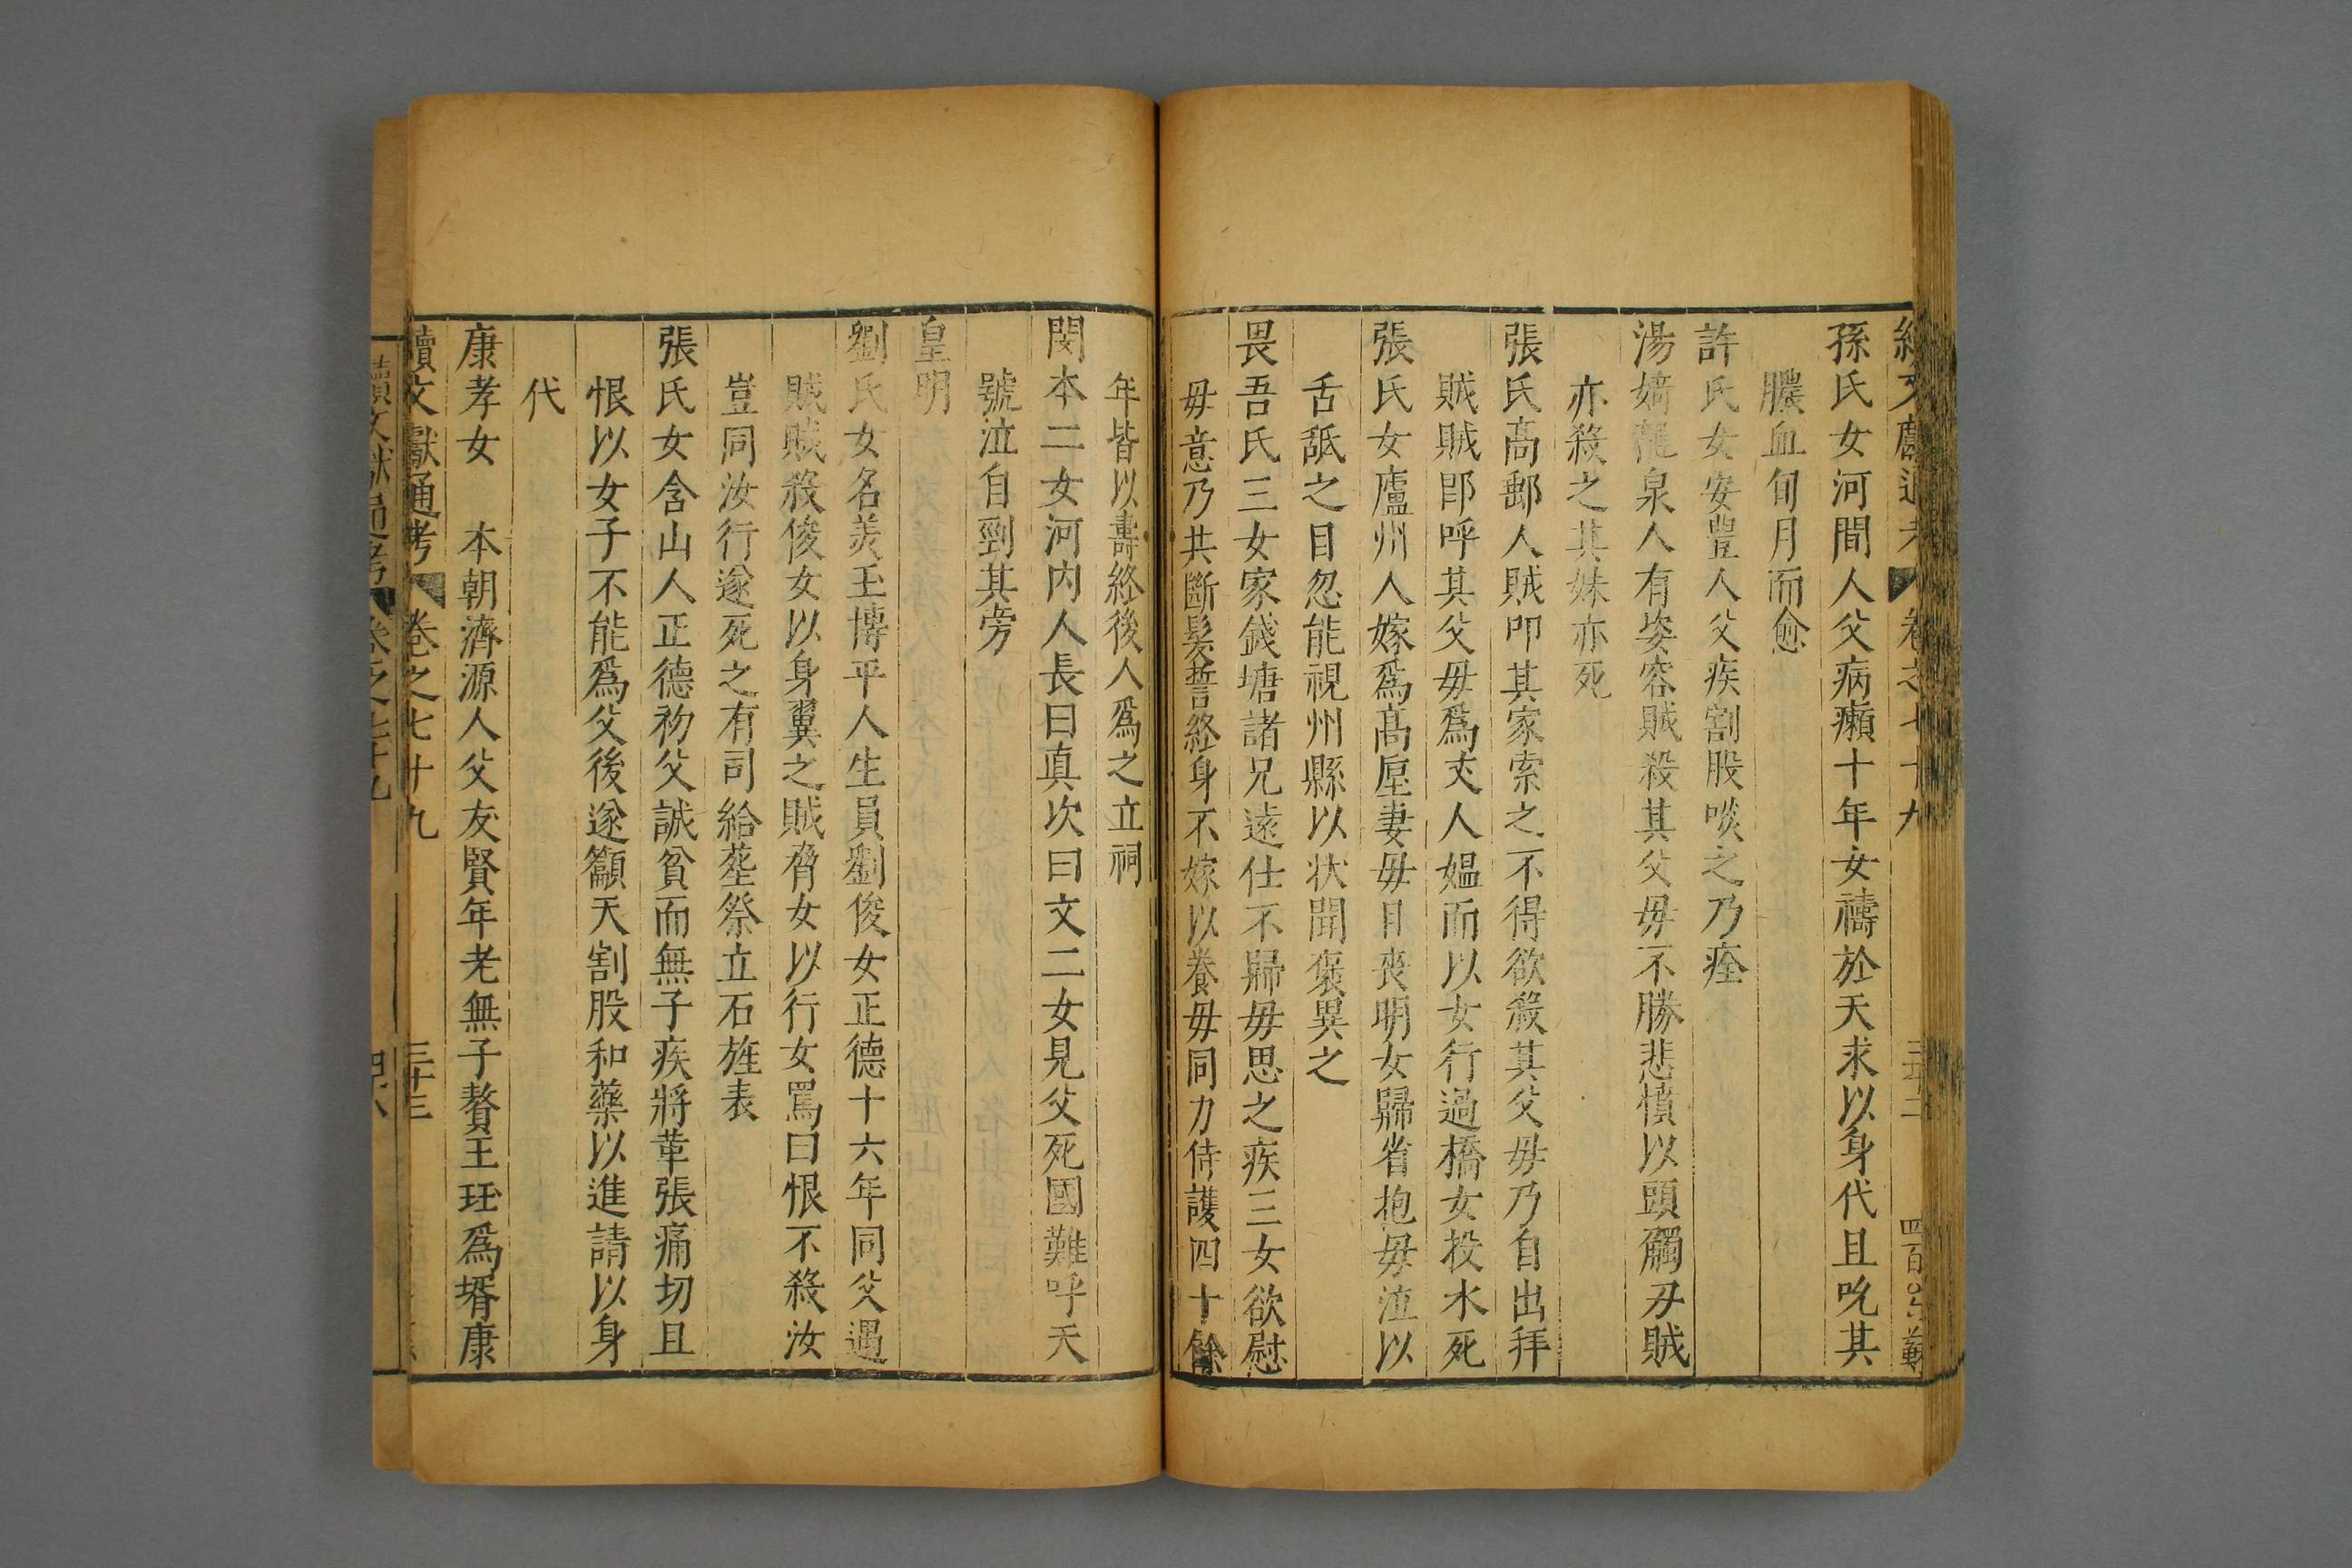 孫氏女河間人父病癩十年女禱於天求以身代且吮其
膿血旬月而愈
許氏女安豐人父疾割股啖之乃痊
湯嫡龍泉人有姿容賊殺其父毋不勝悲憤以頭觸刃賊
亦殺之其妹亦死
張氏高郵人賊叩其家索之不得欲殺其父毋乃自出拜
賊賊即呼其父毋爲丈人媼而以女行過橋女投水死
張氏女廬州人嫁爲髙垕妻毋目喪明女歸省抱毋泣以
舌䑛之目忽能視州縣以状聞褒異之
畏吾氏三女家錢塘諸兄遠仕不歸毋思之疾三女欲慰
毋意乃共斷髮誓終身不嫁以養毋同力侍護四十餘
年皆以壽終後人爲之立祠
閔本二女河内人長曰真次曰文二女見父死國難呼天
號泣自剄其旁
皇明
劉氏女名羙玉博平人生員劉俊女正德十六年同父遇
賊賊殺俊女以身翼之賊脅女以行女罵曰恨不殺汝
豈同汝行遂死之有司給葬祭立石旌表
張氏女含山人正德初父誠貧而無子疾將革張痛切且
恨以女子不能爲父後遂籲天割股和藥以進請以身
代
康孝女　本朝濟源人父友賢年老無子贅王珏爲壻康
續文獻通考　卷之七十九　三十三